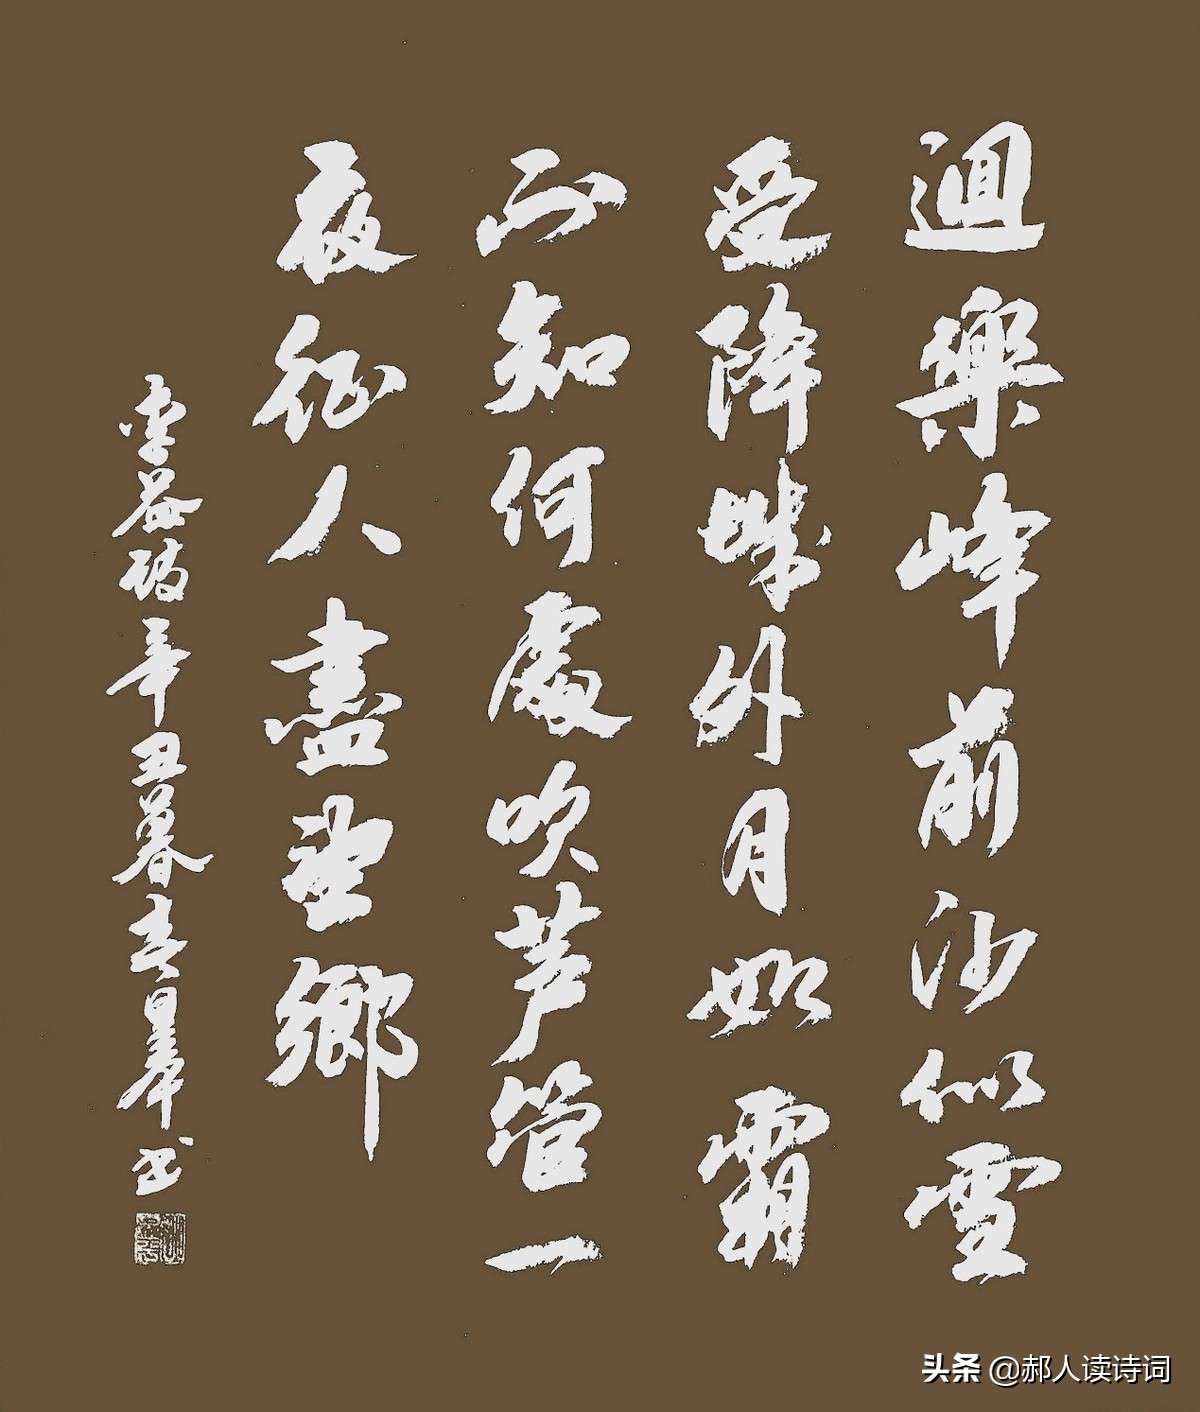 迴樂峰前沙似雪
受降城外月如霜
不知何處吹芦管一
夜征人盡望鄉
李益 辛丑暮春 书
头条 @郝人读诗词